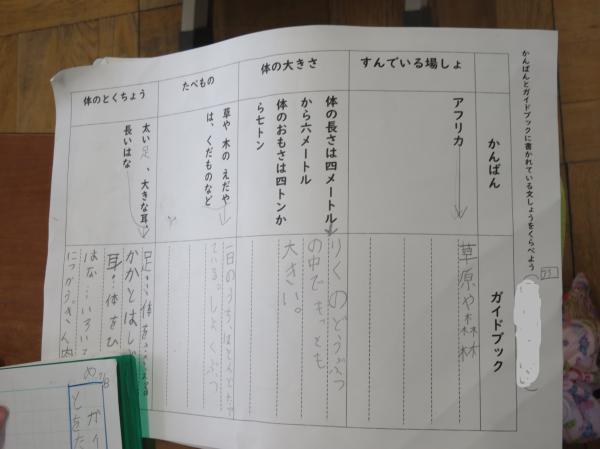 かんばんとガイドブックに書かれている文しょうをくらべよう
23
かんばん
ガイドブック
すんでいる場しょ
アフリカ
草原や森林
体の大きさ
体の長さは四メートル
から六メートル
体のおもさは四トンか
ら七トン
りくのどうぶつ
の中でもっとも
大きい。
たべもの
草や 木の えだや
は、くだものなど
一日のうち、ほとんどたべ
ている。しょくぶつ
体のとくちょう
太い足、大きな耳、
長いはな
足…体を
かかとはし
耳…体をひ
はな…いろいろ